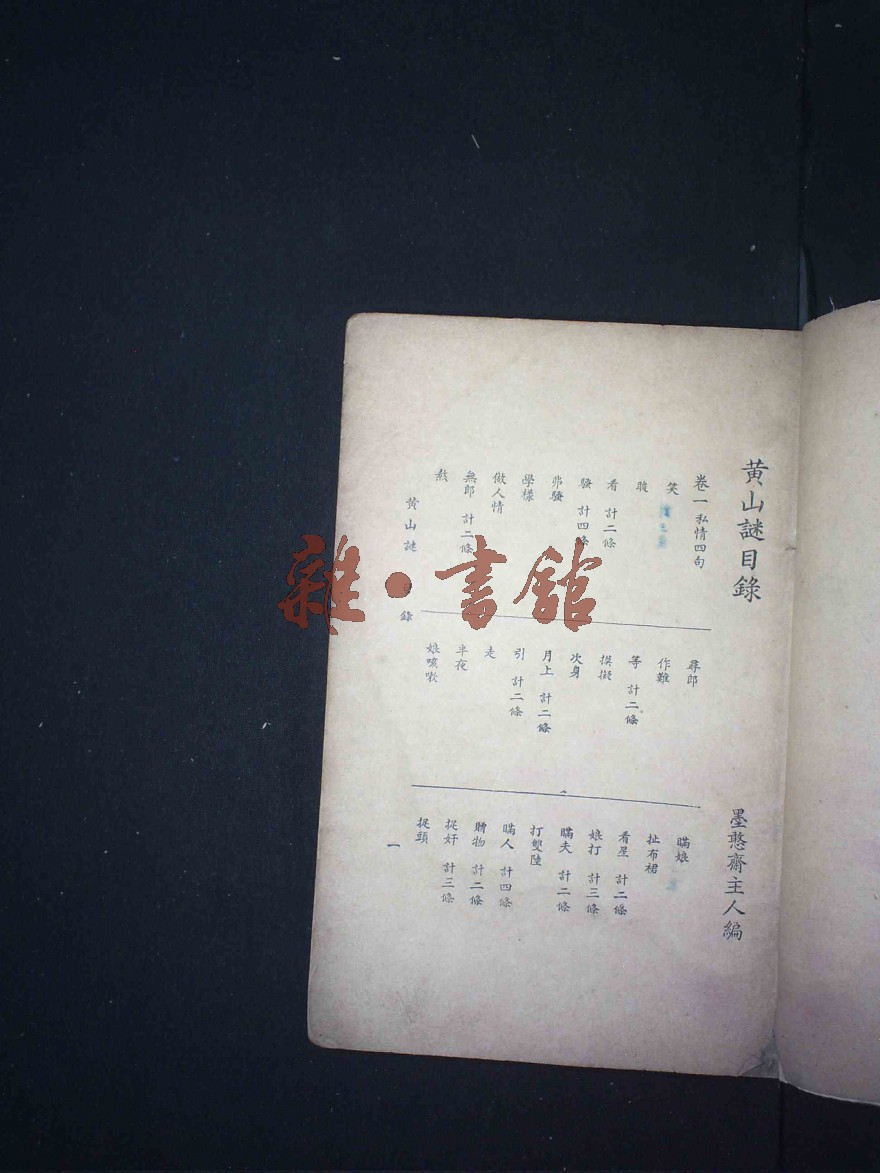 黄山謎目錄
墨憨齋主人編
卷一 私情四句
笑
睃
看 計二條
騷 計四條
弗騷
學樣
做人情
無郎 計二條
熬
尋郎
作難
等 計二條
模擬
次身
月上 計二條
引 計二條
走
半夜
娘咳嗽
瞞娘
扯布裙
看星 計二條
娘打 計三條
瞞夫 計二條
打雙陸
瞞人 計四條
贈物 計二條
捉奸 計三條
捉頭
黄山謎 目錄
一
雜·書館